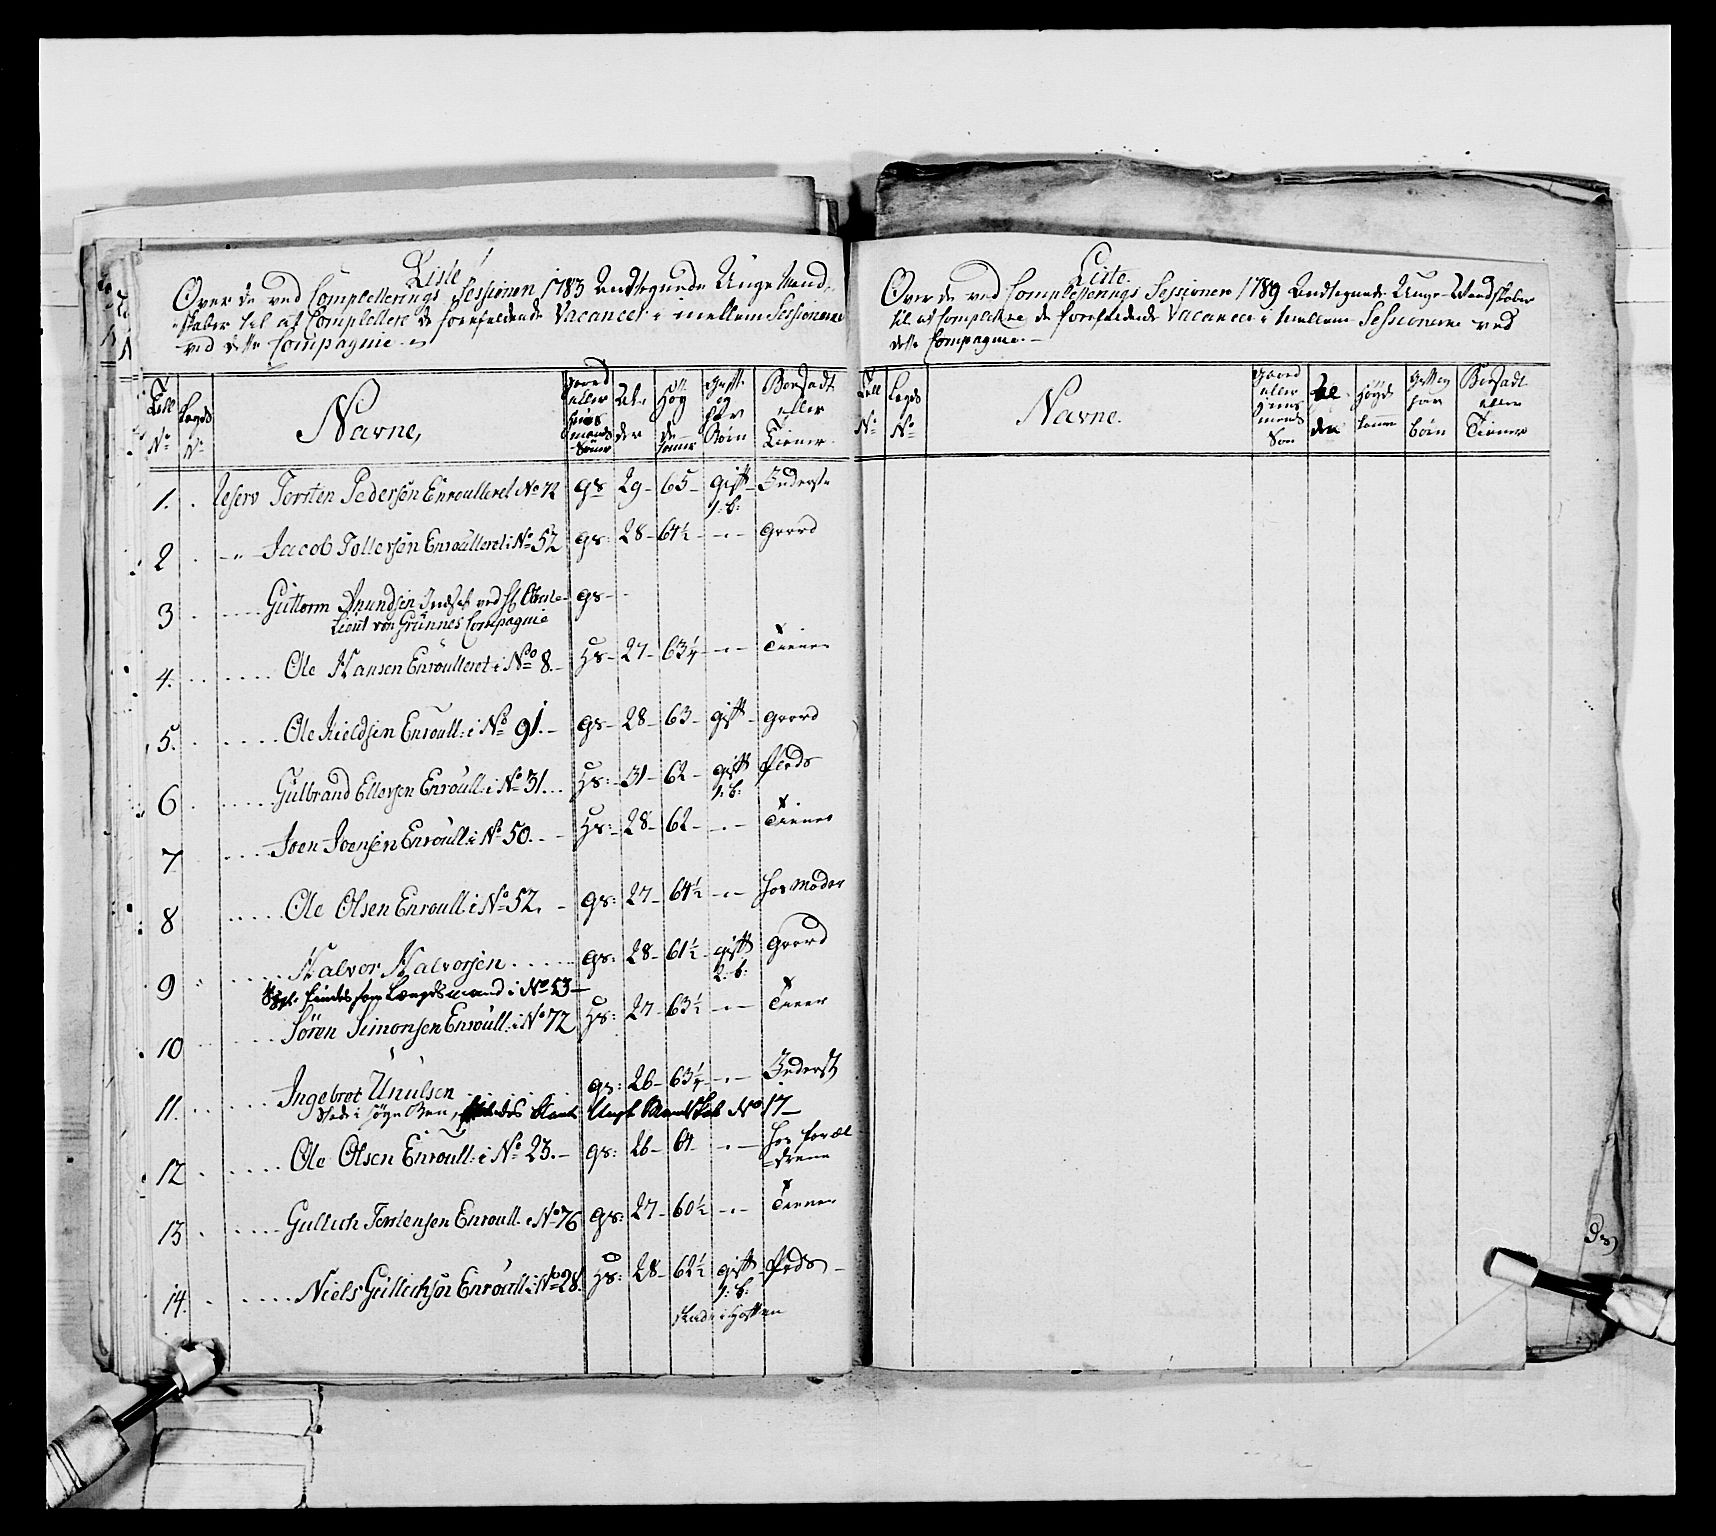 Liste
Over de ved Completterings Sessionen 1783 Andtegnede Unge Mand-
skaber til at Complettere de forefaldende Vacancer i mellem Sessionerne
ved dette Compagnie
Tell No
Lægds No
Navne,
Gaard eller Huus mands Sønner
Al- der
Høy de tomer
Gift og har Børn
Bosadt eller Tiener
1. Reserv Torsten Pedersøn Enroulleret No 72 gs 29 65 gift 1: b: Inderst
2 " Jacob Tollersøn Enroulleret i No 52 gs: 28 64½ Gaard
3 Guttorm Amundsen Indsat ved Hr Obrste-
Lieut von Grünnes Compagnie gs
4. Ole Hansen Enroulleret i No 8. Hs 27 63¼ Tiener
5. Ole Kieldsen Enroull: i No 91. gs 28 63 gift Gaard
6 Gulbrand Ellevsen Enroull: i No 31. Hs: 31 62 gift 1: b: Plads
7 Joen Joensen Enroull: i No 50. Hs: 28 62 Tiener
8 Ole Olsen Enroull: i No 52. gs: 27 64½ hos Moder
9 Halvor Halvorsen gs: 28 61½ gift 2: b: Gaard
findes som Lægdsmand i No 53
10 Søren Simonsen Enroull: i No 72 Hs: 27 63½ Tiener
11. Ingebret Unulsen gs: 26 63¼ Inderst
Ungt Mandskab No 17
12 Ole Olsen Enroull: i No 23. gs: 26 64 hos foræl
drene
13 Gullich Torstensen Enroull: i No 76 gs: 27 60½ Tiener
14. Niels Gullichsøn Enroull: i No 28. Hs: 28 62½ gift 1: b: Plads
skade i Hoften
Liste
Over de ved Completterings Sessionen 1789 Andtegnede Unge Mandskaber
til at Complettere de forefaldende Vacancer i mellem Sessionerne ved
dette Compagnie.
Tell No
Lægds No
Navne.
Gaard eller Huus mands Søn
Al der
Høyde tomme
Gift og har børn
Bosadt eller Tiener